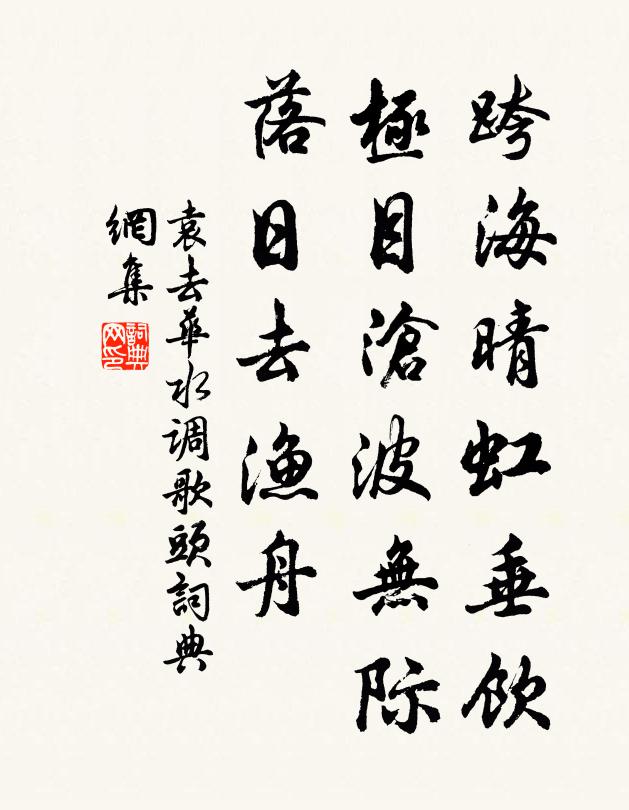 跨海晴虹垂飲
極目滄波無际
落日去漁舟
袁去華水调歌頭詞典
網集
詞典网印